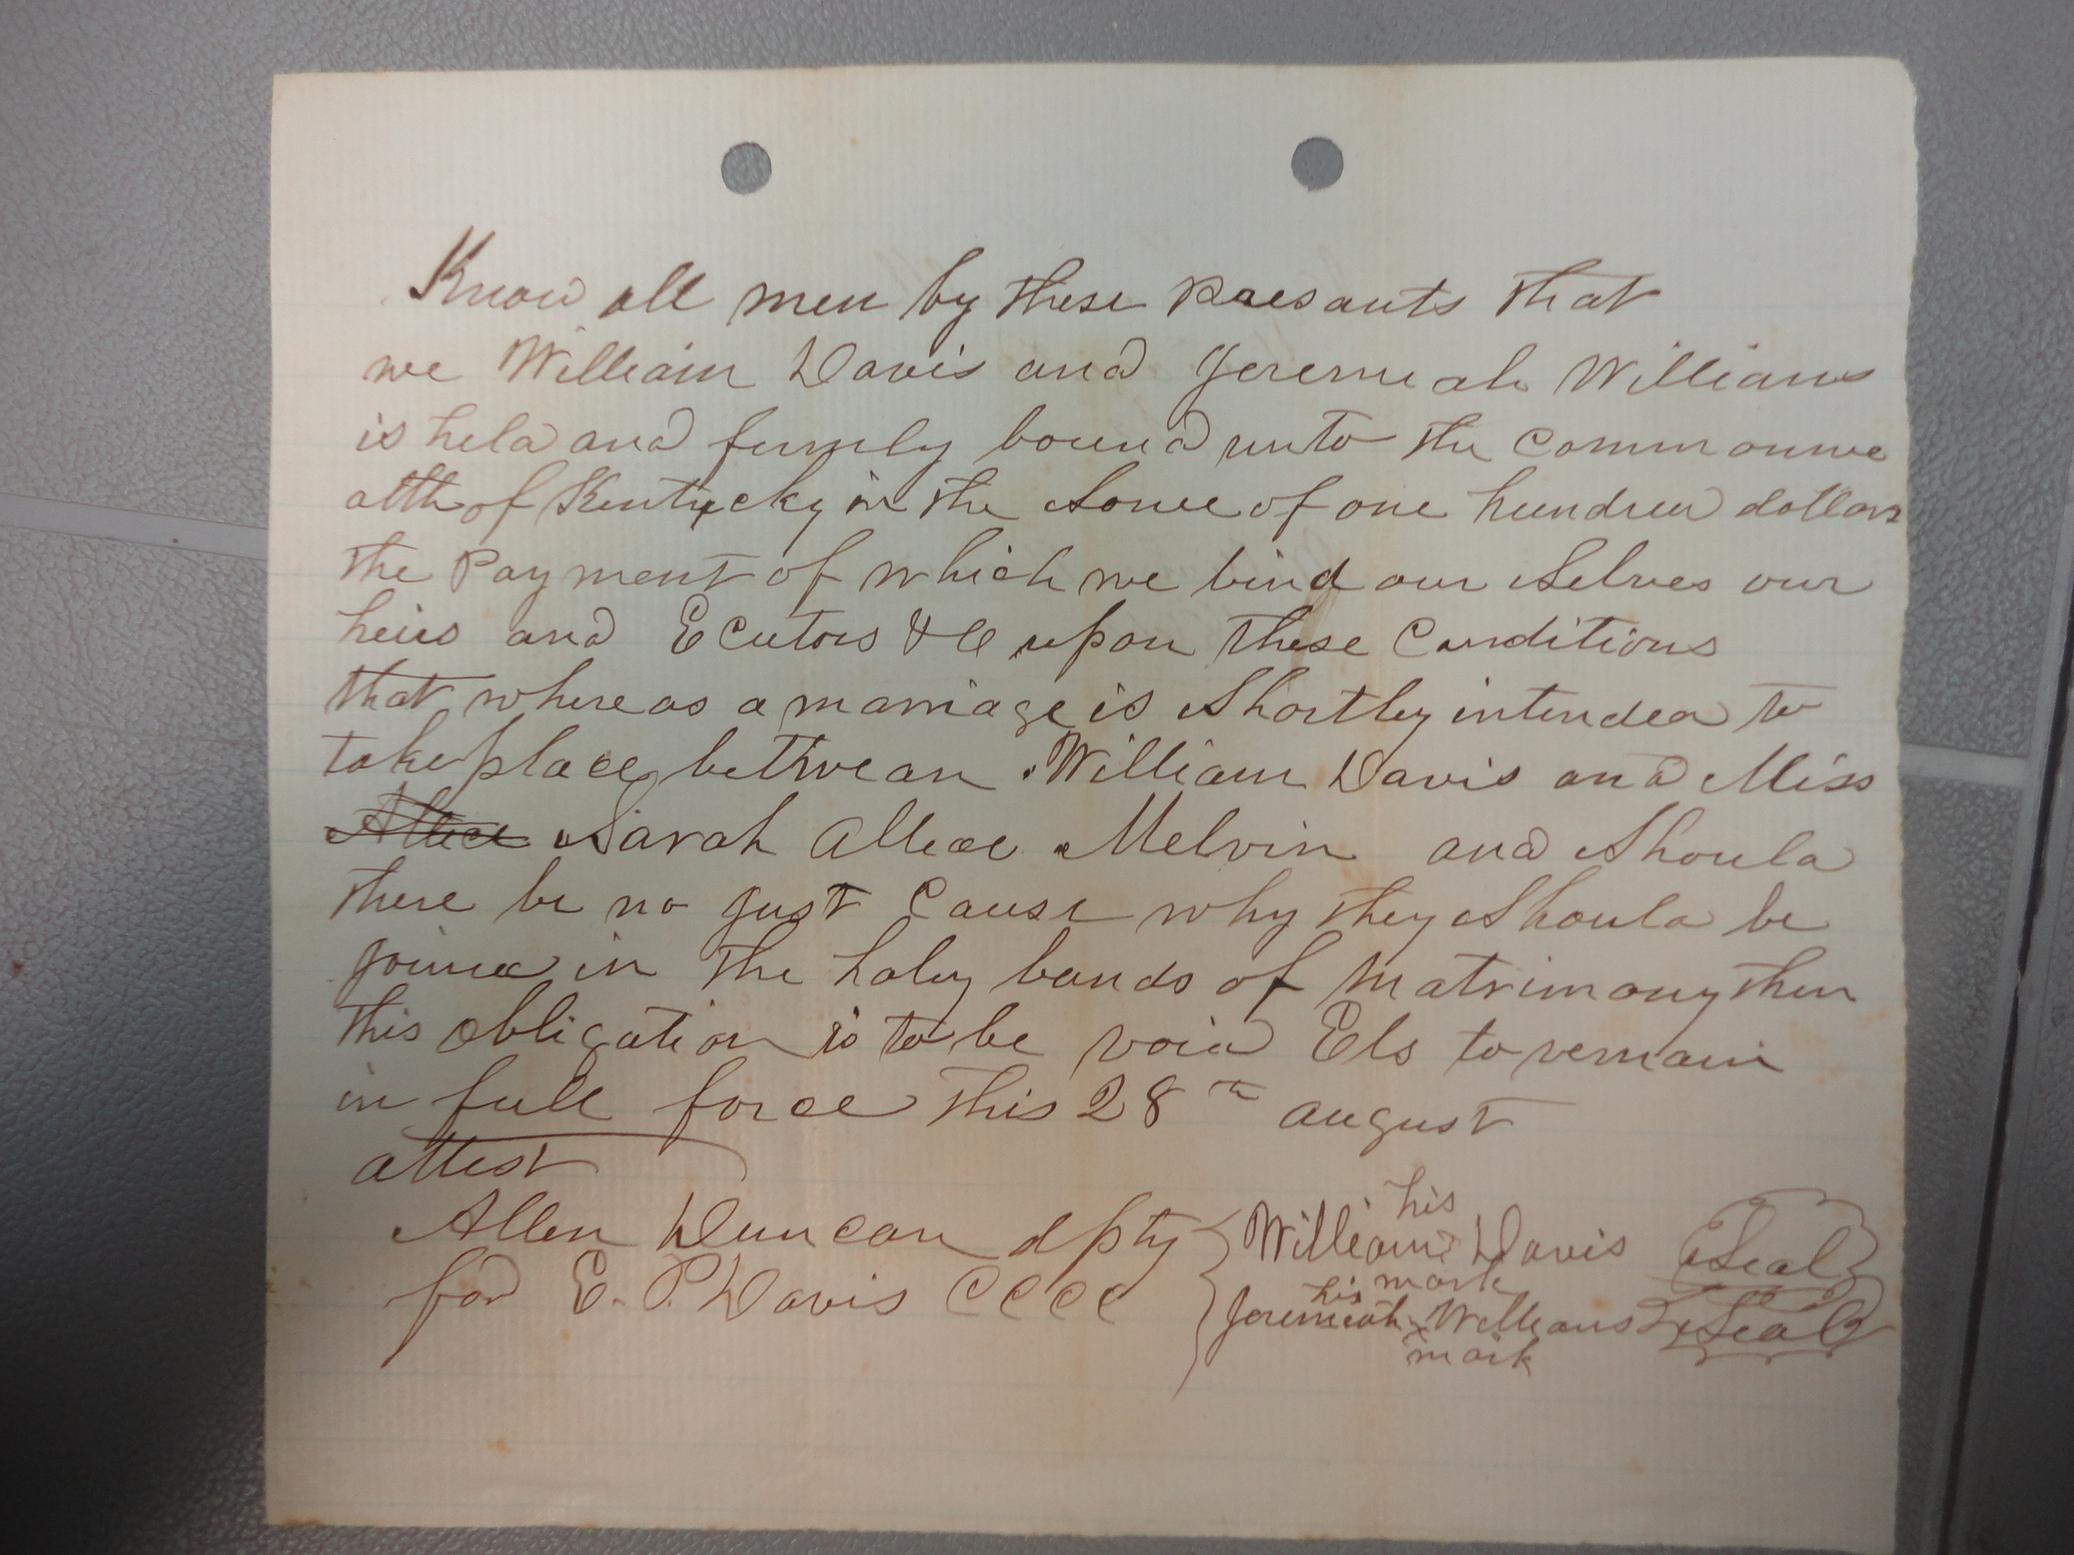 Know all men by these presants that
we William Davis and Jeremiah Williams
is held and firmly bound unto the Commonwe
alth of Kentucky in the Some of one hundred dollars
the Payment of which we bind our Selves our
heirs and Ecutors &c upon these Conditions
that whereas a marriage is Shortley intended to
take place bettwean William Davis and Miss
Sarah Allice Melvin and Should
there be no just Cause why they Should be
joined in the holey bands of Matrimony then
this obligation is to be void Els to remain
in full force this 28th august
attest
Allen Duncan dpty
for E. P. Davis CCCC
his
William Davis Seal
mark
his
Jeremiah x Williams Seal
mark